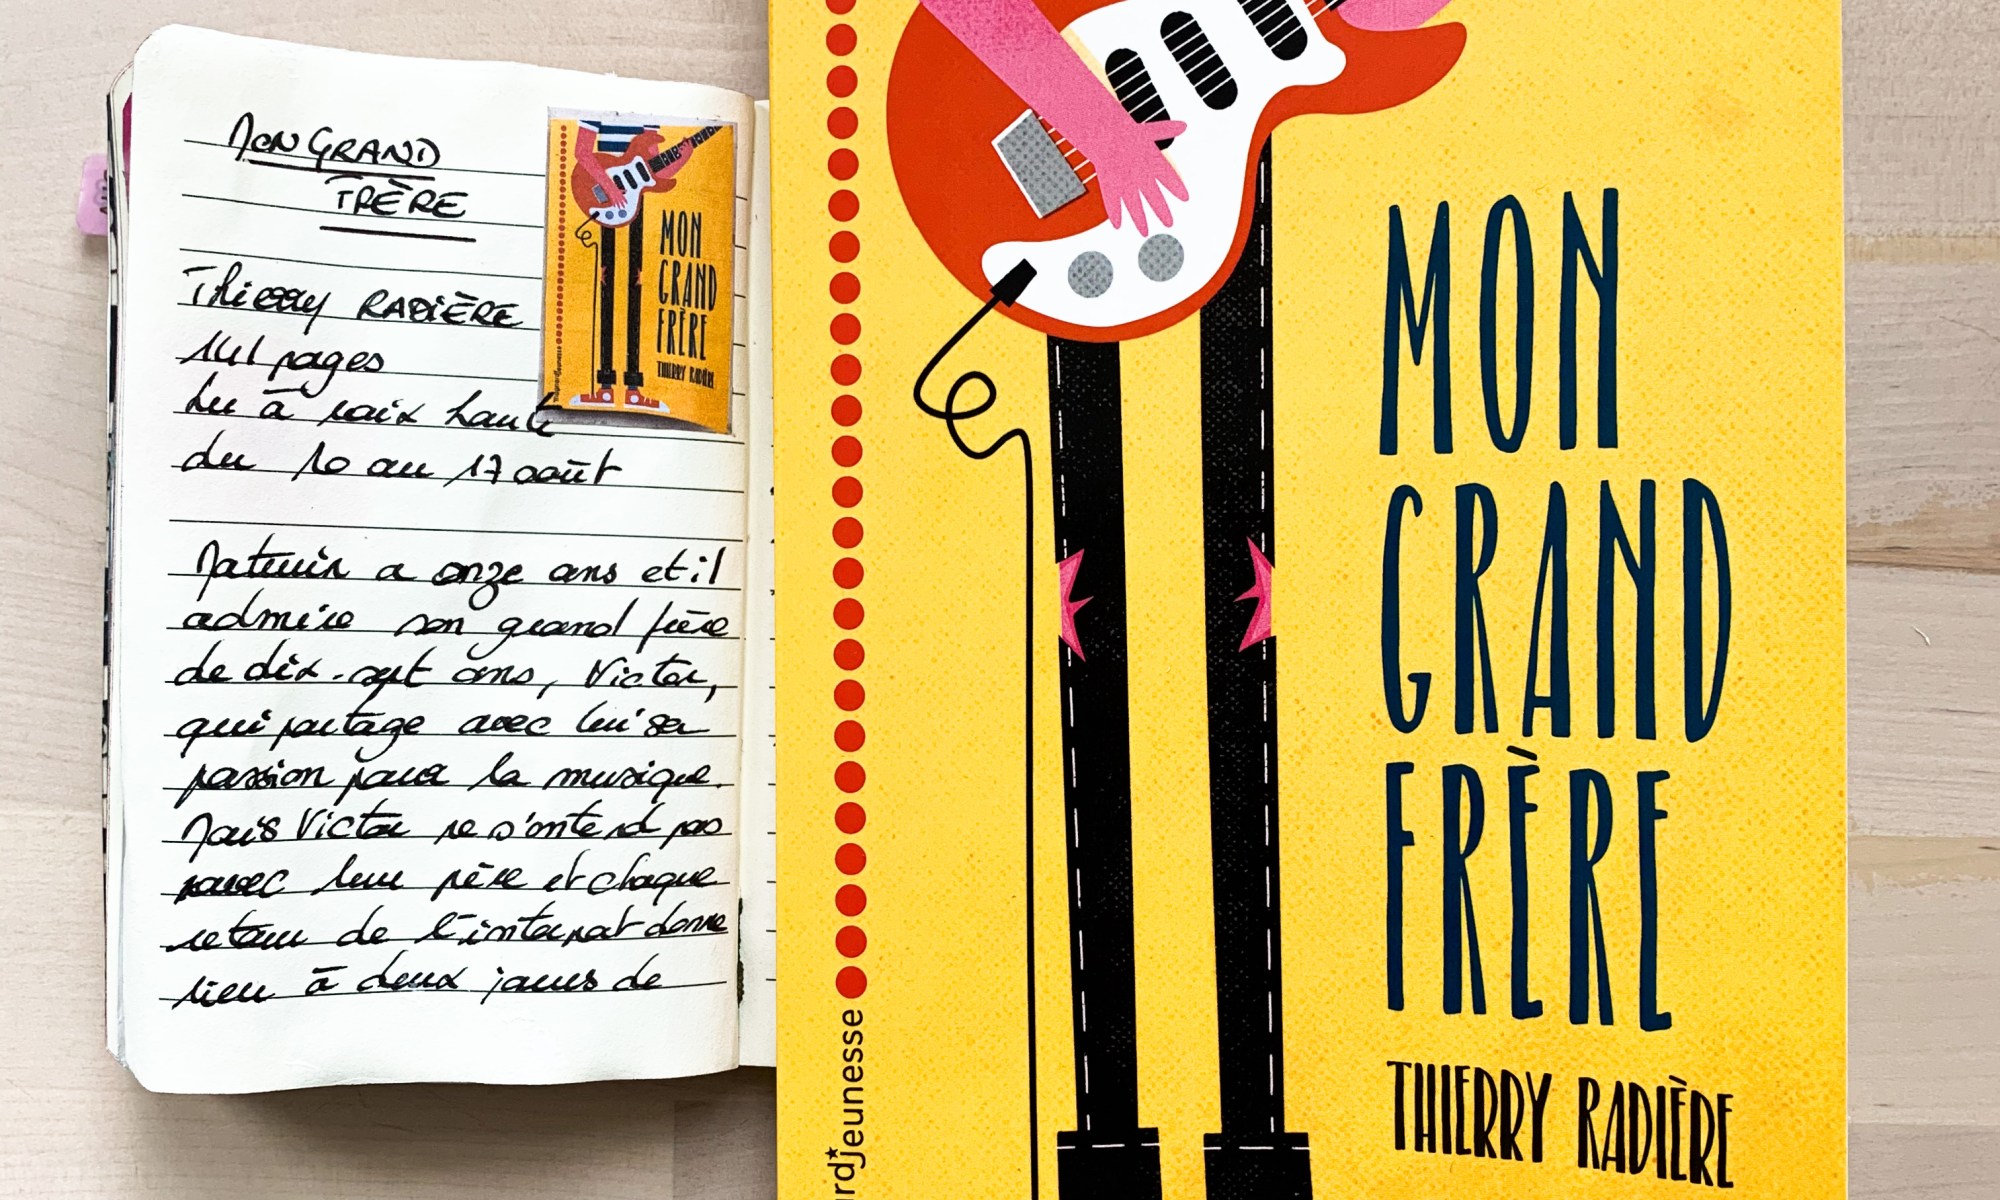 MON GRAND
FRÈRE
Thierry RADIÈRE
141 pages
Lu à voix haute
du 10 au 17 août
a onze ans et il
admire son grand frère
de dix-sept ans, Victor,
qui partage avec lui sa
passion pour la musique.
Mais Victor ne s'entend pas
avec leur père et chaque
retour de l'internat donne
lieu à deux jours de
MON
GRAND
FRÈRE
THIERRY RADIÈRE
MON
GRAND
FRÈRE
THIERRY RADIÈRE
jeunesse